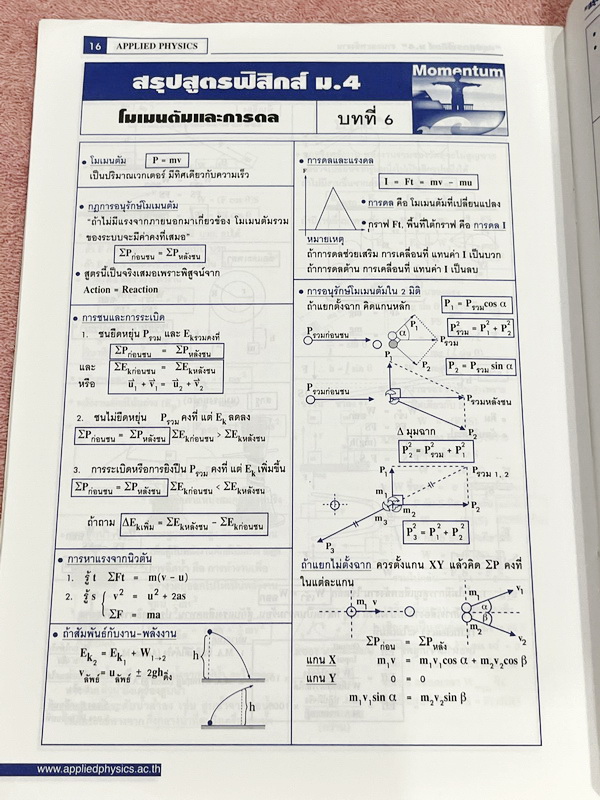 16 APPLIED PHYSICS
สรุปสูตรฟิสิกส์ ม.4
Momentum
โมเมนตัมและการดล
บทที่ 6
• โมเมนตัม P = mv
เป็นปริมาณเวกเตอร์ มีทิศเดียวกับความเร็ว
• กฎการอนุรักษ์โมเมนตัม
"ถ้าไม่มีแรงจากภายนอกมาเกี่ยวข้อง โมเมนตัมรวม
ของระบบจะมีค่าคงที่เสมอ"
ΣPก่อนชน = ΣPหลังชน
• สูตรนี้เป็นจริงเสมอเพราะพิสูจน์จาก
Action = Reaction
• การชนและการระเบิด
1. ชนยืดหยุ่น Pรวม และ Ekรวมคงที่
ΣPก่อนชน = ΣPหลังชน
และ ΣEkก่อนชน = ΣEkหลังชน
หรือ u⃗1 + v⃗1 = u⃗2 + v⃗2
2. ชนไม่ยืดหยุ่น Pรวม คงที่ แต่ Ek ลดลง
ΣPก่อนชน = ΣPหลังชน ΣEkก่อนชน > ΣEkหลังชน
3. การระเบิดหรือการยิงปืน Pรวม คงที่ แต่ Ek เพิ่มขึ้น
ΣPก่อนชน = ΣPหลังชน ΣEkก่อนชน < ΣEkหลังชน
ถ้าถาม ΔEkเพิ่ม = ΣEkหลังชน − ΣEkก่อนชน
• การหาแรงจากนิวตัน
1. รู้ t ΣFt = m(v − u)
2. รู้ s { v² = u² + 2as
ΣF = ma
• ถ้าสัมพันธ์กับงาน-พลังงาน
Ek2 = Ek1 + W1→2
vลัพธ์² = uลัพธ์² ± 2ghดิ่ง
h
h
• การดลและแรงดล
F
I = Ft = mv − mu
• การดล คือ โมเมนตัมที่เปลี่ยนแปลง
• กราฟ Ft. พื้นที่ใต้กราฟ คือ การดล I
หมายเหตุ
ถ้าการดลช่วยเสริม การเคลื่อนที่ แทนค่า I เป็นบวก
ถ้าการดลต้าน การเคลื่อนที่ แทนค่า I เป็นลบ
• การอนุรักษ์โมเมนตัมใน 2 มิติ
ถ้าแยกตั้งฉาก คิดแกนหลัก
P1 = Pรวม cos α
P²รวม = P1² + P2²
P2 = Pรวม sin α
Pรวมก่อนชน α P1 Pรวม P2
Pรวมก่อนชน P1 Pรวมหลังชน P2
Δ มุมฉาก
P2² = P²รวม + P1²
P1 Pรวม 1, 2
m1 m2 P2
m3
P3
P3² = P1² + P2²
ถ้าแยกไม่ตั้งฉาก ควรตั้งแกน XY แล้วคิด ΣP คงที่
ในแต่ละแกน
m1 v m1 v1 α β m2 v2
ΣPก่อน = ΣPหลัง
แกน X m1v = m1v1cos α + m2v2cos β
แกน Y 0 = 0
m1v1sin α = m2v2sin β
www.appliedphysics.ac.th